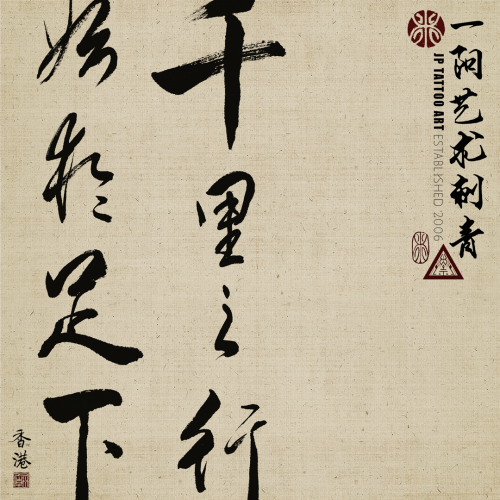 一阳艺术刺青
JP TATTOO ART ESTABLISHED 2006
千里之行
始於足下
香港